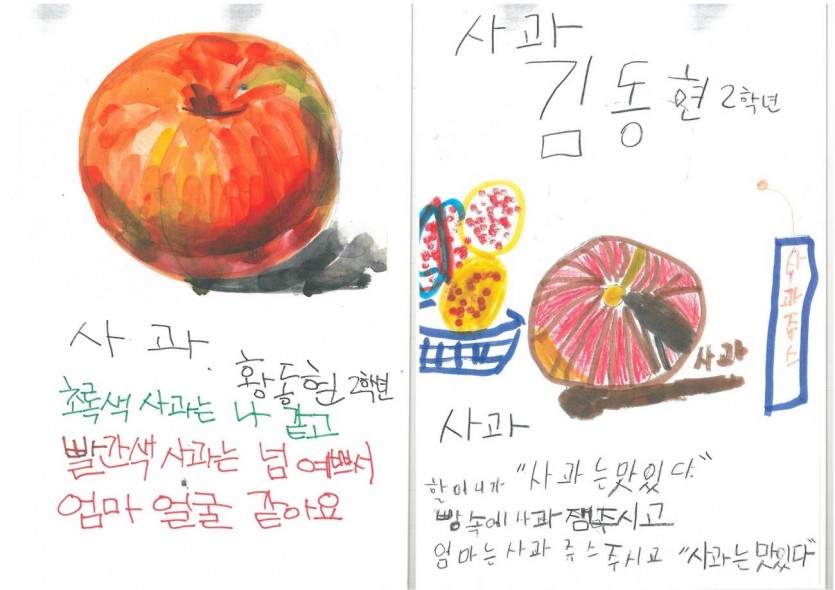 사과
황동현 2학년
초록색 사과는 나 같고
빨간색 사과는 넘 예뻐서
엄마 얼굴 같아요
사과
김동현 2학년
사과쥬스
사과
사과
할머니가 "사과는맛있다"
빵속에 사과 잼주시고
엄마는 사과 쥬스주시고 "사과는맛있다"